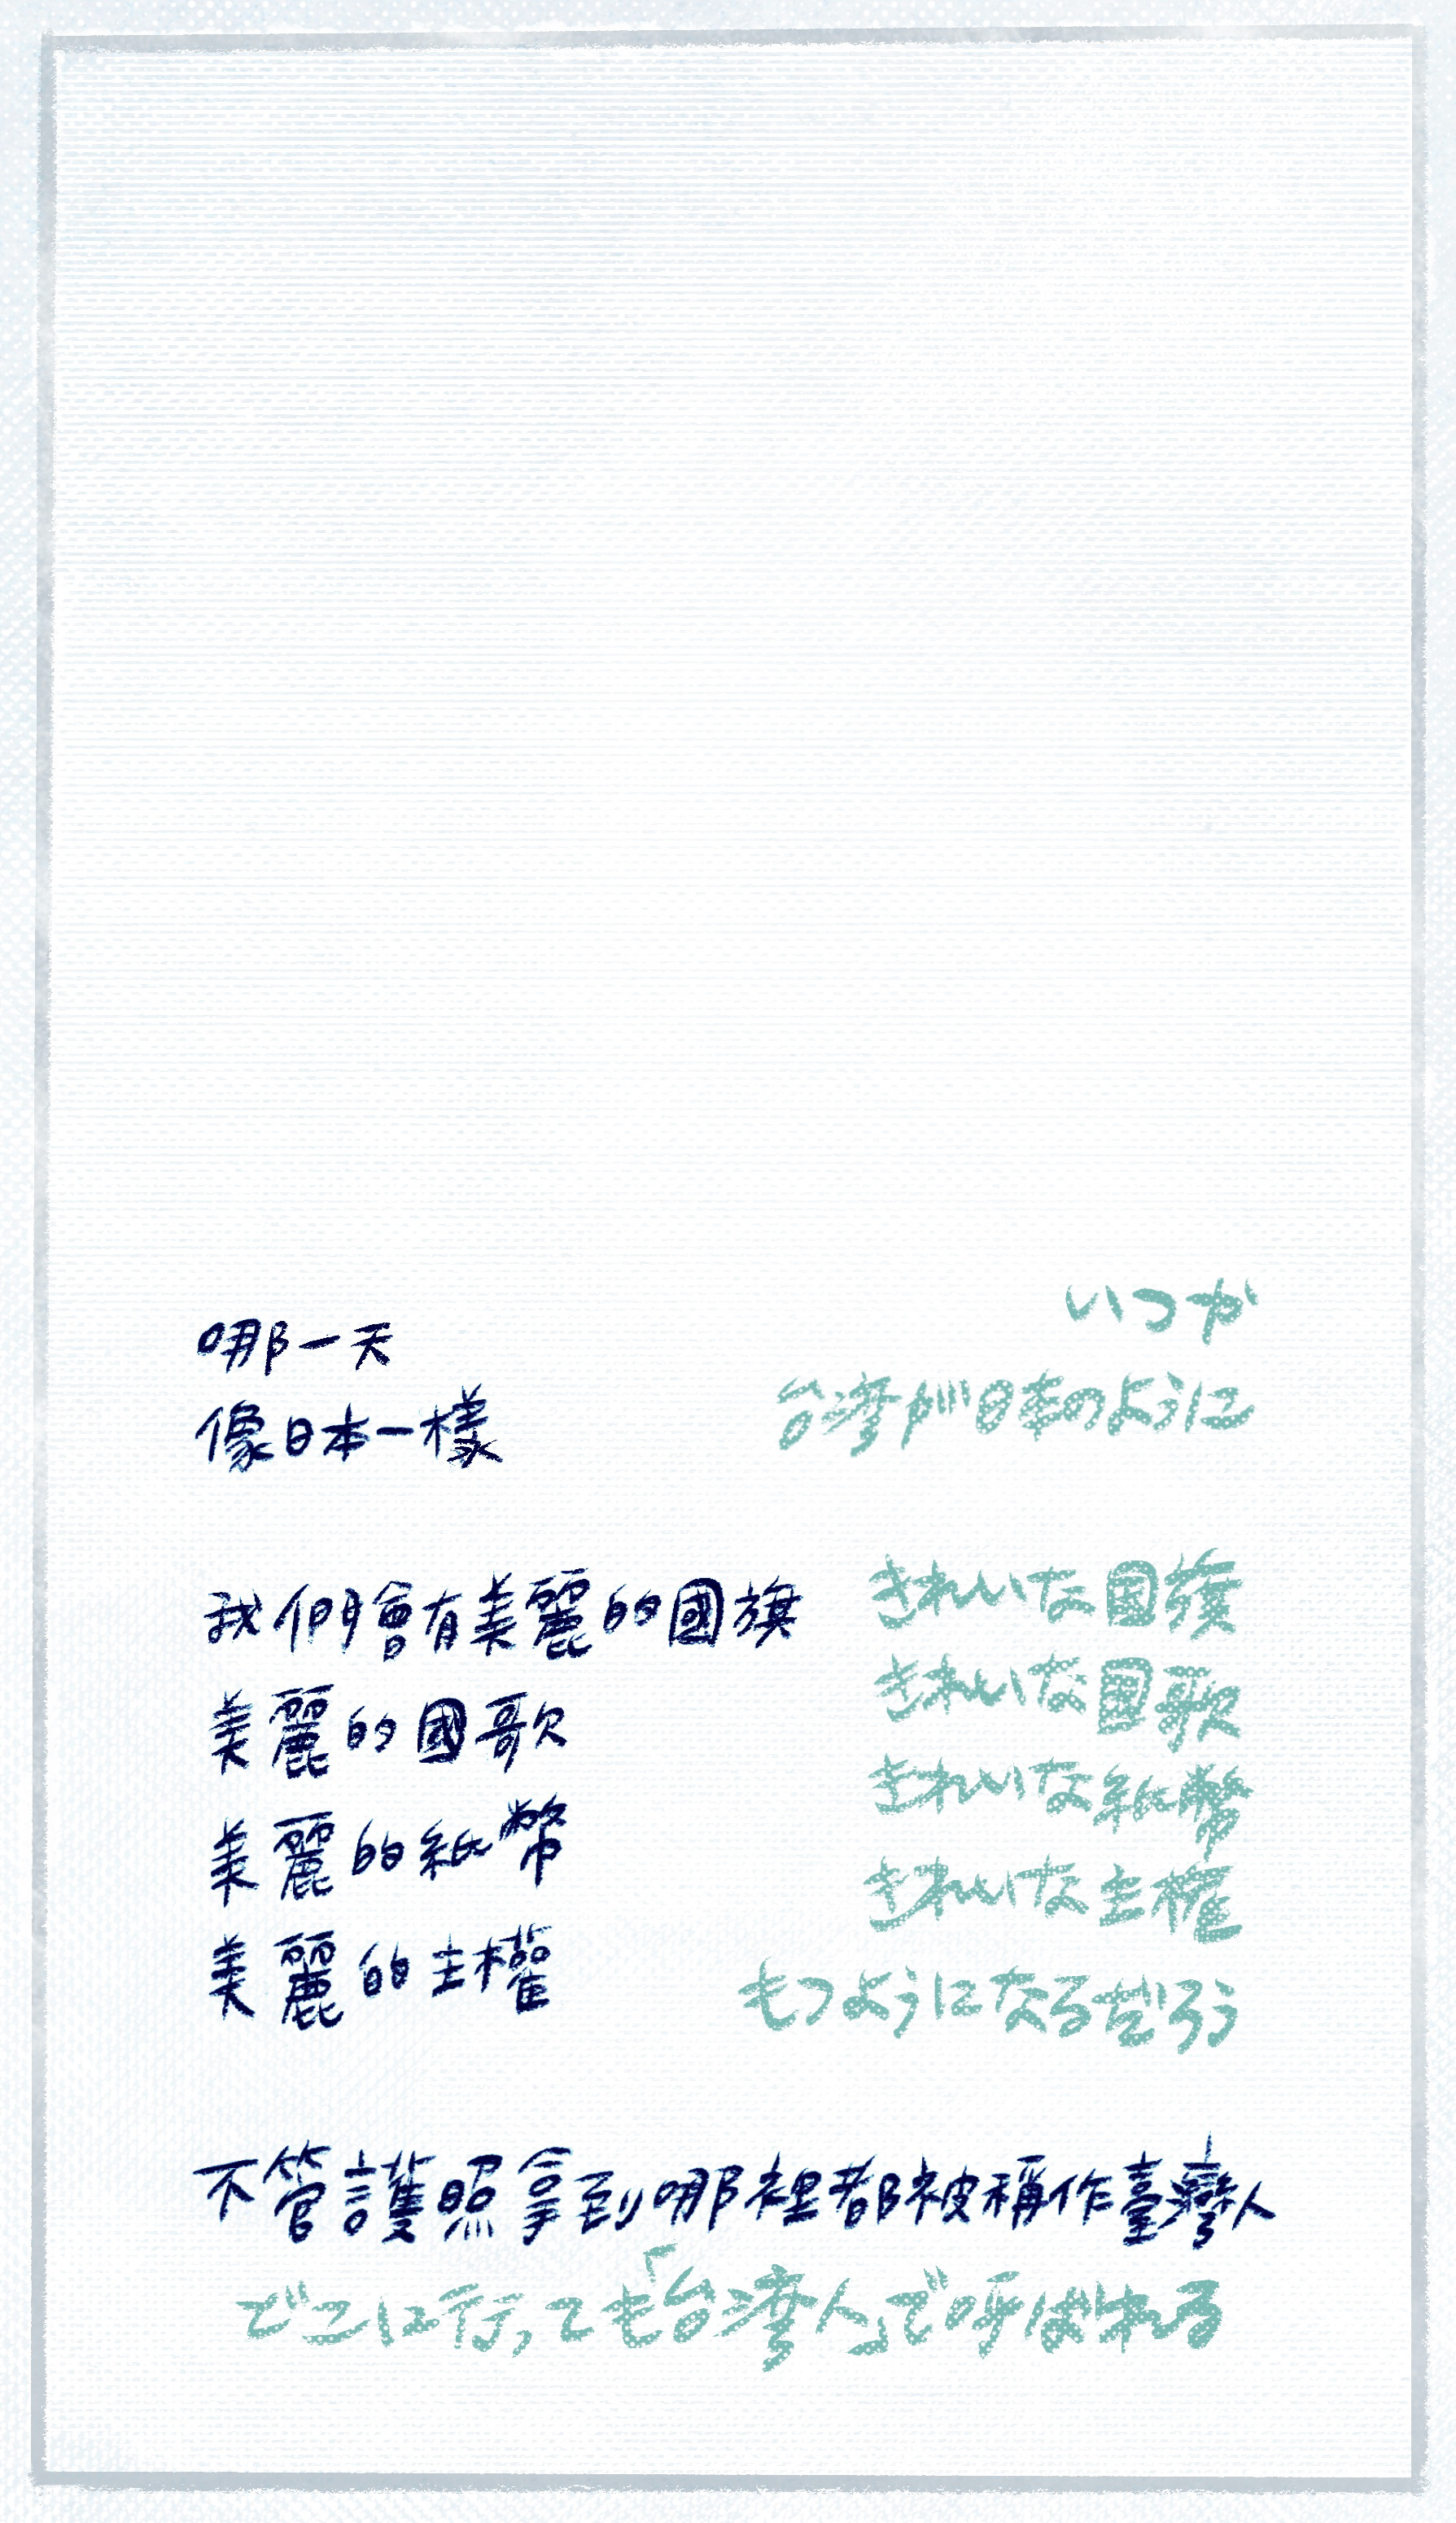 哪一天
像日本一樣
我們會有美麗的國旗
美麗的國歌
美麗的紙幣
美麗的主權
いつか
台湾が日本のように
きれいな国旗
きれいな国歌
きれいな紙幣
きれいな主権
もつようになるだろう
不管護照拿到哪裡都被稱作臺灣人
どこに行っても「台湾人」で呼ばれる